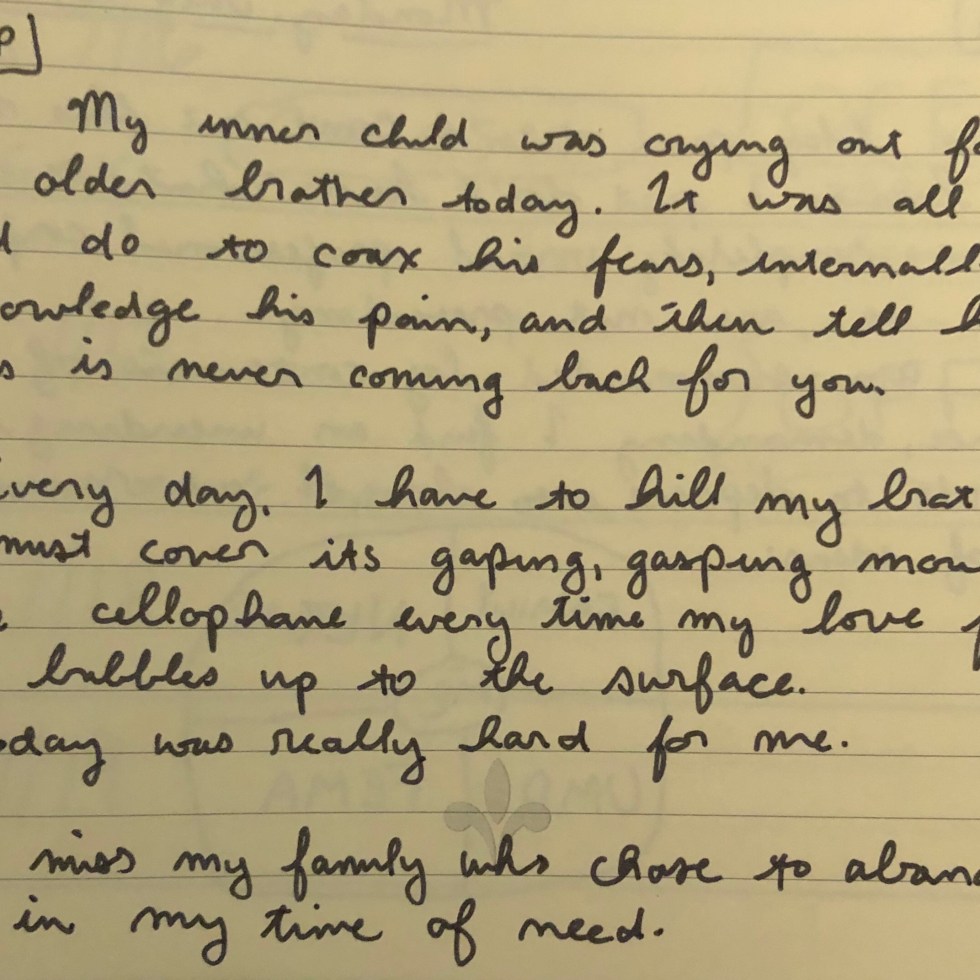 P
My inner child was crying out fo
older brother today. It was all
d do to coax his fears, internall
owledge his pain, and then tell h
s is never coming back for you.
Every day, I have to kill my brot
must cover its gaping, gasping mou
cellophane every time my love f
bubbles up to the surface.
oday was really hard for me.
miss my family who chose to aband
in my time of need.